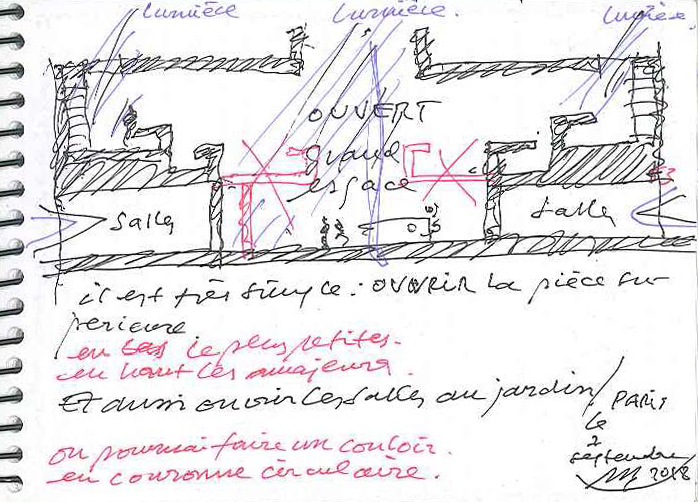 Lumière
Lumière.
Lumière.
OUVERT
Grand
espace
Salle
Salle
il est très simple : OUVRIR La pièce su-
perieure
en bas le plus petites.
en haut les majeurs.
Et aussi ouvrir les salles au jardin/
PARIS
le
2
septembre
2018
on pourrai faire un couloir.
en couronne circulaire.